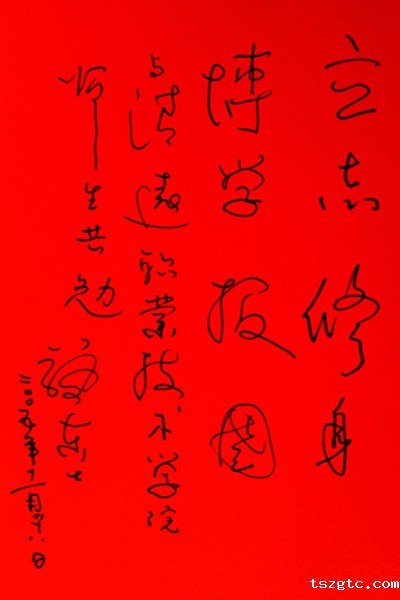 立志修身
博学报国
与清远职業技术学院
师生共勉
二〇〇五年十一月廿八日
tszgtc.com